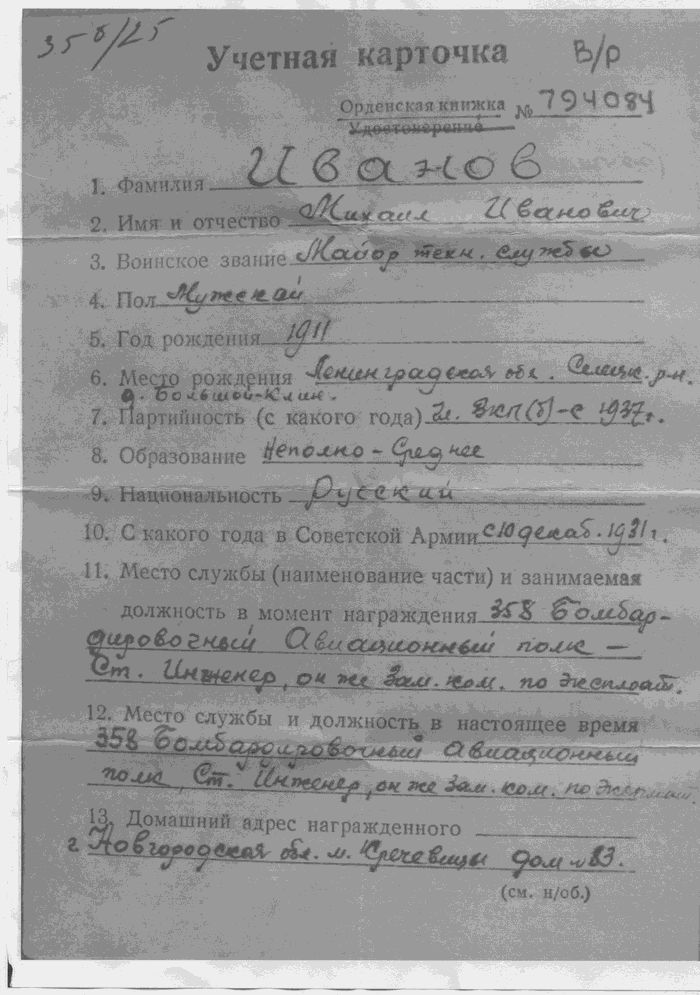 358/25
Учетная карточка В/р
Орденская книжка № 794084
Удостоверение
1. Фамилия Иванов
2. Имя и отчество Михаил Иванович
3. Воинское звание Майор техн. службы
4. Пол Мужской
5. Год рождения 1911
6. Место рождения Ленинградская обл. р-н.
д. Большой-Клин.
7. Партийность (с какого года) Чл. ВКП(б)-с 1937г.
8. Образование Неполно-Среднее
9. Национальность Русский
10. С какого года в Советской Армии с 10 декаб. 1931г.
11. Место службы (наименование части) и занимаемая
должность в момент награждения 358 Бомбар-
дировочный Авиационный полк —
Ст. Инженер, он же Зам. ком. по эксплоат.
12. Место службы и должность в настоящее время
358 Бомбардировочный Авиационный
полк, Ст. Инженер, он же Зам. ком. по
13. Домашний адрес награжденного
г Новгородская обл. м. Кречевицы дом №83.
(см. н/об.)